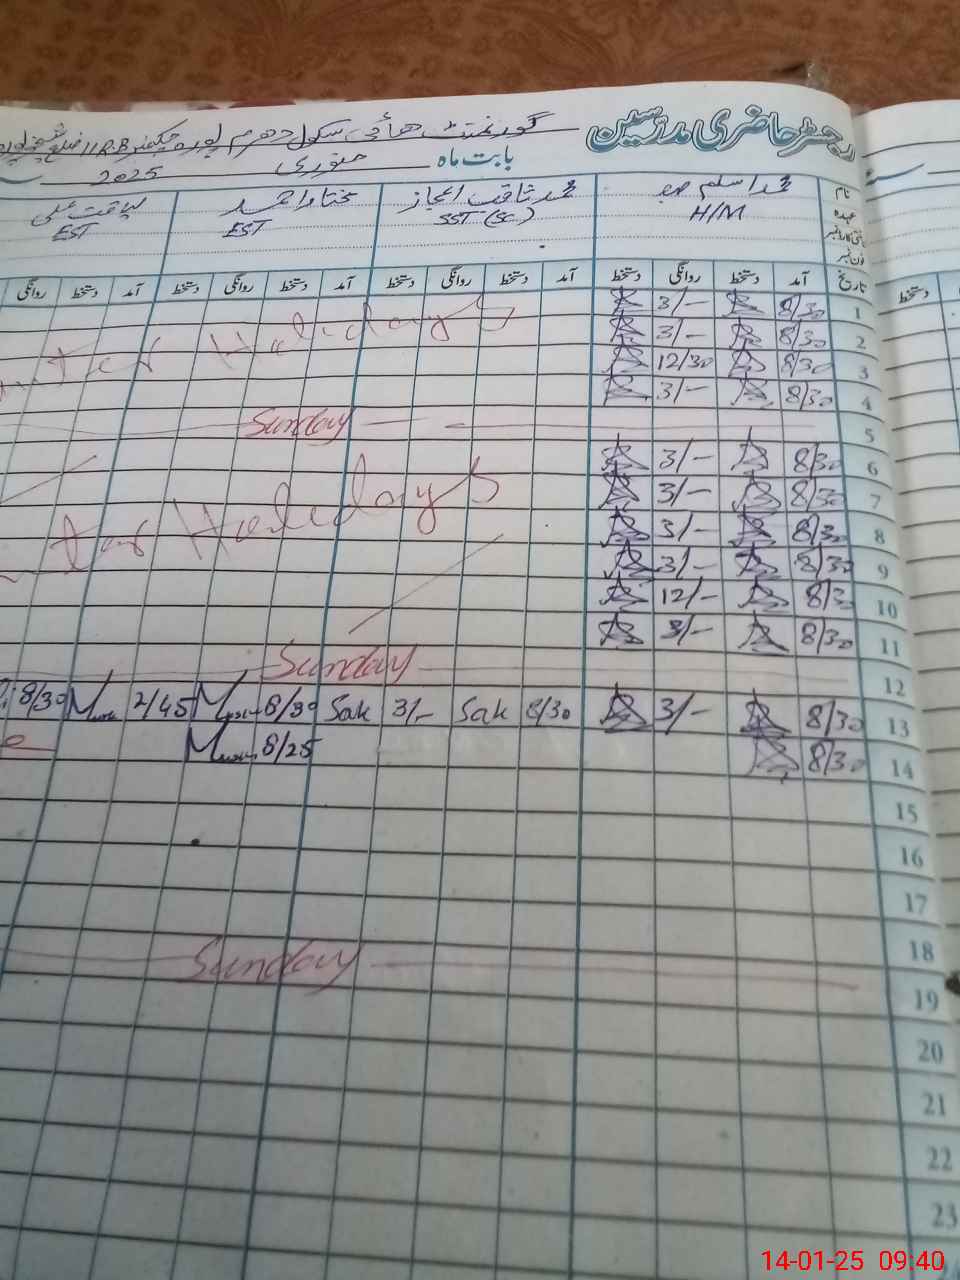 رجسٹر حاضری مدرسین گورنمنٹ ھائی سکول دھرم پورہ چکنمبر 11R.B ضلع
بابت ماہ جنوری 2025
نام محمد اسلم محمد ثاقب اعجاز مختار احمد لیاقت علی
عہدہ H/M SST (SC) EST EST
فون نمبر
تاریخ آمد دستخط روانگی دستخط آمد دستخط روانگی دستخط آمد دستخط روانگی دستخط آمد دستخط روانگی
1 8/30 3/-
2 8/30 3/-
Holidays
3 8/30 12/30
4 8/30 3/-
5 Sunday
6 8/30 3/-
7 8/30 3/-
Holidays
8 8/30 3/-
9 8/30 3/-
10 8/30 12/-
11 8/30 3/-
12 Sunday
13 8/30 3/- 8/30 Sak 3/- Sak 8/30 2/45 8/30
14 8/30 8/25
15
16
17
18
19 Sunday
20
21
22
23
دستخط
14-01-25 09:40